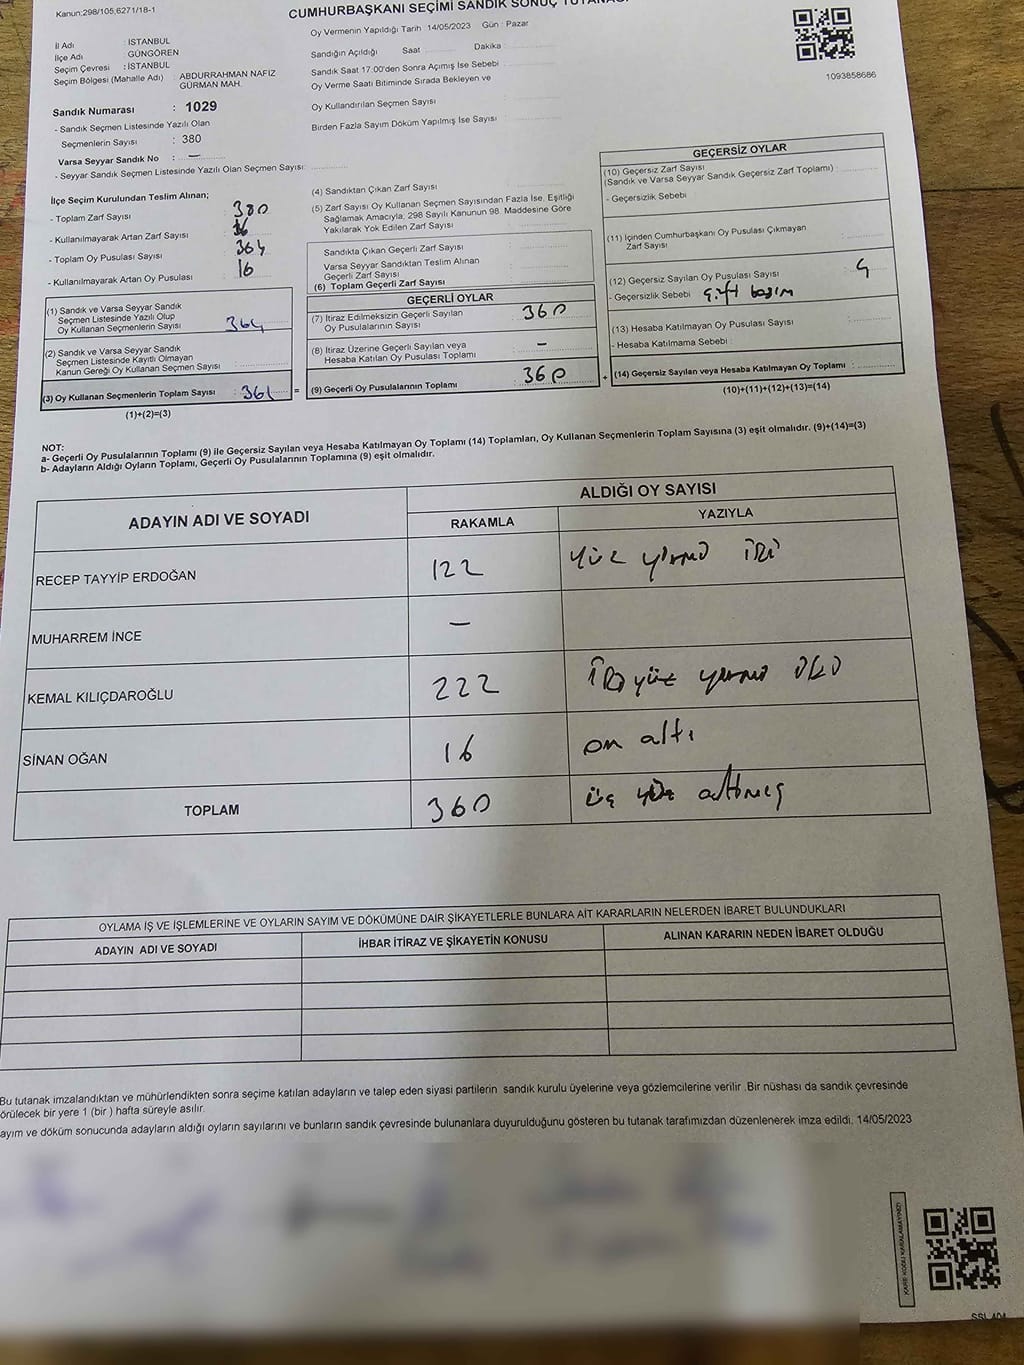 Kanun:298/105,6271/18-1
CUMHURBAŞKANI SEÇİMİ SANDIK SONUÇ TUTANAĞI
İl Adı : İSTANBUL
İlçe Adı : GÜNGÖREN
Seçim Çevresi : İSTANBUL
Seçim Bölgesi (Mahalle Adı) : ABDURRAHMAN NAFIZ
GÜRMAN MAH.
Sandık Numarası : 1029
- Sandık Seçmen Listesinde Yazılı Olan
Seçmenlerin Sayısı : 380
Varsa Seyyar Sandık No : —
- Seyyar Sandık Seçmen Listesinde Yazılı Olan Seçmen Sayısı:
Oy Vermenin Yapıldığı Tarih 14/05/2023 Gün : Pazar
Sandığın Açıldığı Saat Dakika
Sandık Saat 17:00'den Sonra Açımış İse Sebebi :
Oy Verme Saati Bitiminde Sırada Bekleyen ve
Oy Kullandırılan Seçmen Sayısı :
Birden Fazla Sayım Döküm Yapılmış İse Sayısı :
1093858686
İlçe Seçim Kurulundan Teslim Alınan;
- Toplam Zarf Sayısı : 380
- Kullanılmayarak Artan Zarf Sayısı : 16
- Toplam Oy Pusulası Sayısı : 364
- Kullanılmayarak Artan Oy Pusulası : 16
(1) Sandık ve Varsa Seyyar Sandık
Seçmen Listesinde Yazılı Olup
Oy Kullanan Seçmenlerin Sayısı : 364
(2) Sandık ve Varsa Seyyar Sandık
Seçmen Listesinde Kayıtlı Olmayan
Kanun Gereği Oy Kullanan Seçmen Sayısı :
(3) Oy Kullanan Seçmenlerin Toplam Sayısı : 364 =
(1)+(2)=(3)
(4) Sandıktan Çıkan Zarf Sayısı :
(5) Zarf Sayısı Oy Kullanan Seçmen Sayısından Fazla İse, Eşitliği
Sağlamak Amacıyla, 298 Sayılı Kanunun 98. Maddesine Göre
Yakılarak Yok Edilen Zarf Sayısı :
Sandıkta Çıkan Geçerli Zarf Sayısı :
Varsa Seyyar Sandıktan Teslim Alınan
Geçerli Zarf Sayısı :
(6) Toplam Geçerli Zarf Sayısı :
GEÇERLİ OYLAR
(7) İtiraz Edilmeksizin Geçerli Sayılan
Oy Pusulalarının Sayısı : 360
(8) İtiraz Üzerine Geçerli Sayılan veya
Hesaba Katılan Oy Pusulası Toplamı : —
(9) Geçerli Oy Pusulalarının Toplamı : 360 +
GEÇERSİZ OYLAR
(10) Geçersiz Zarf Sayısı
(Sandık ve Varsa Seyyar Sandık Geçersiz Zarf Toplamı) :
- Geçersizlik Sebebi
(11) İçinden Cumhurbaşkanı Oy Pusulası Çıkmayan
Zarf Sayısı :
(12) Geçersiz Sayılan Oy Pusulası Sayısı : 4
- Geçersizlik Sebebi çift basım
(13) Hesaba Katılmayan Oy Pusulası Sayısı :
- Hesaba Katılmama Sebebi :
(14) Geçersiz Sayılan veya Hesaba Katılmayan Oy Toplamı :
(10)+(11)+(12)+(13)=(14)
NOT:
a- Geçerli Oy Pusulalarının Toplamı (9) ile Geçersiz Sayılan veya Hesaba Katılmayan Oy Toplamı (14) Toplamları, Oy Kullanan Seçmenlerin Toplam Sayısına (3) eşit olmalıdır. (9)+(14)=(3)
b- Adayların Aldığı Oyların Toplamı, Geçerli Oy Pusulalarının Toplamına (9) eşit olmalıdır.
ADAYIN ADI VE SOYADI
ALDIĞI OY SAYISI
RAKAMLA YAZIYLA
RECEP TAYYİP ERDOĞAN 122 yüz yirmi iki
MUHARREM İNCE —
KEMAL KILIÇDAROĞLU 222 iki yüz yirmi iki
SİNAN OĞAN 16 on altı
TOPLAM 360 üç yüz altmış
OYLAMA İŞ VE İŞLEMLERİNE VE OYLARIN SAYIM VE DÖKÜMÜNE DAİR ŞİKAYETLERLE BUNLARA AİT KARARLARIN NELERDEN İBARET BULUNDUKLARI
ADAYIN ADI VE SOYADI İHBAR İTİRAZ VE ŞİKAYETİN KONUSU ALINAN KARARIN NEDEN İBARET OLDUĞU
Bu tutanak imzalandıktan ve mühürlendikten sonra seçime katılan adayların ve talep eden siyasi partilerin sandık kurulu üyelerine veya gözlemcilerine verilir .Bir nüshası da sandık çevresinde
örülecek bir yere 1 (bir ) hafta süreyle asılır.
ayım ve döküm sonucunda adayların aldığı oyların sayılarını ve bunların sandık çevresinde bulunanlara duyurulduğunu gösteren bu tutanak tarafımızdan düzenlenerek imza edildi. 14/05/2023
KARE KODU KARALAMAYINIZ!